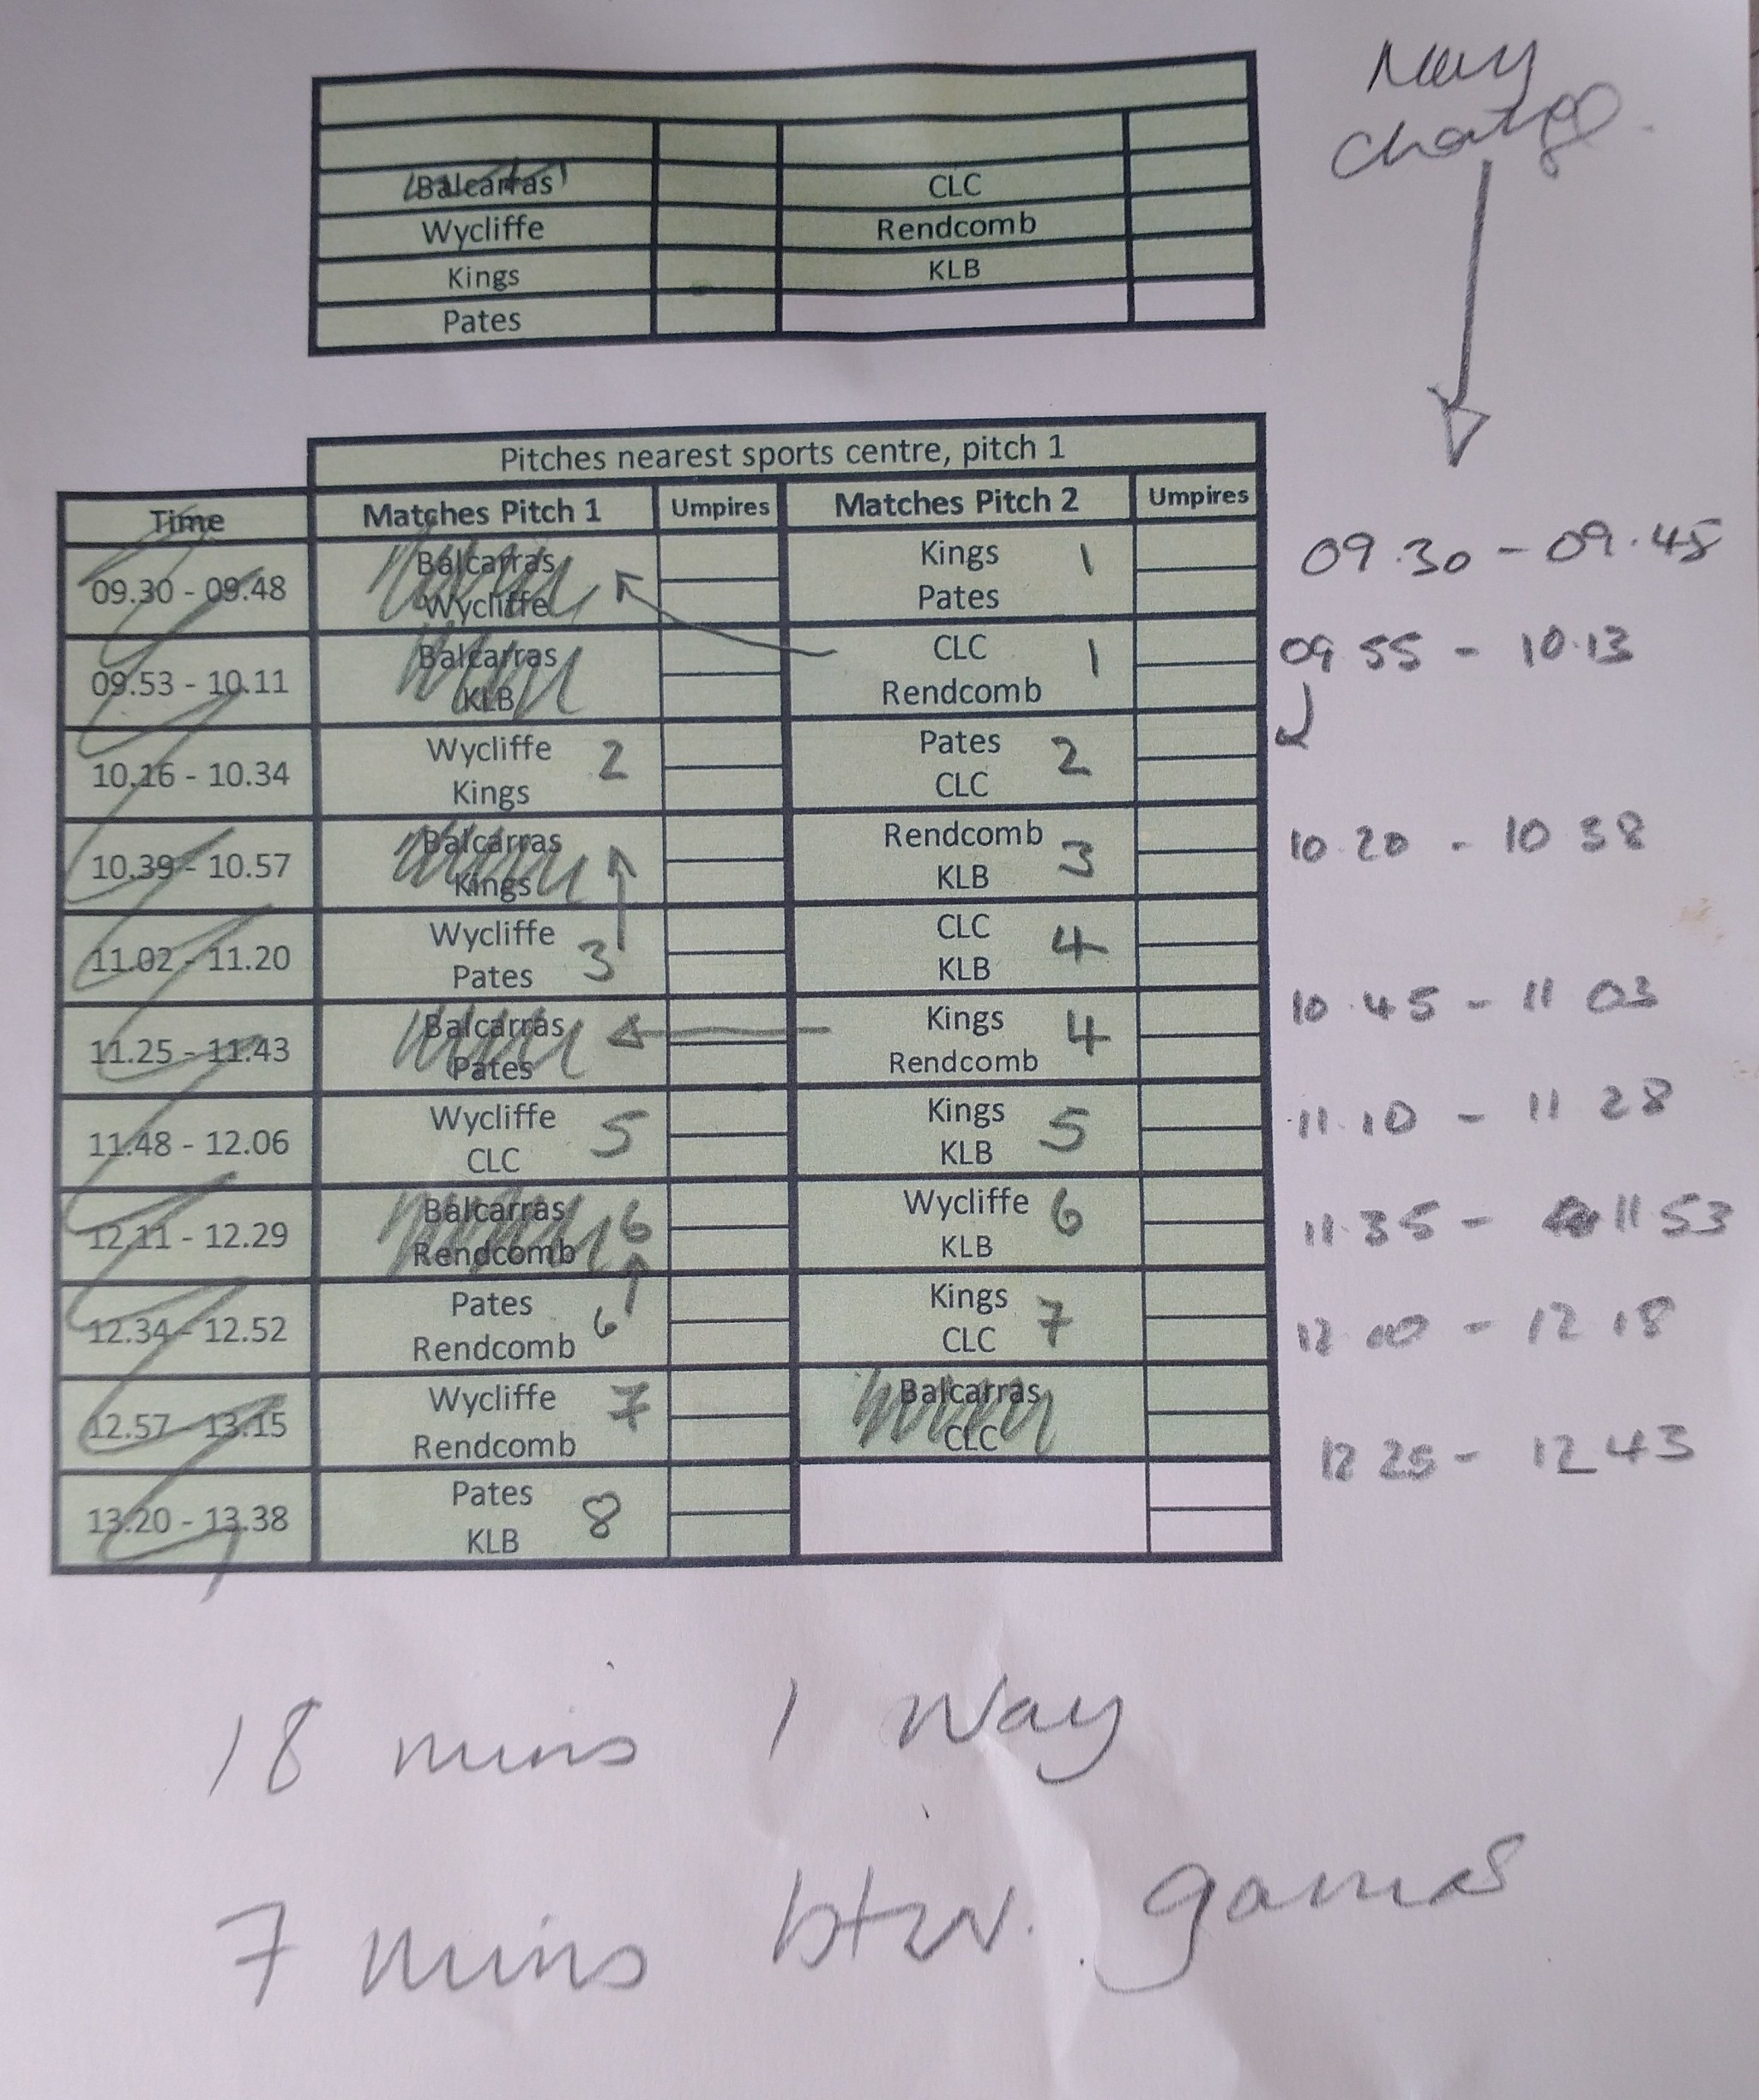 May
change
Balcarras CLC
Wycliffe Rendcomb
Kings KLB
Pates
Pitches nearest sports centre, pitch 1
Time Matches Pitch 1 Umpires Matches Pitch 2 Umpires
09.30 - 09.48 Balcarras Kings 1 09.30 - 09.48
Wycliffe Pates
09.53 - 10.11 Balcarras CLC 1 09 55 - 10.13
KLB Rendcomb
10.16 - 10.34 Wycliffe 2 Pates 2
Kings CLC
10.39 - 10.57 Balcarras Rendcomb 3 10 20 - 10 38
Kings KLB
11.02 - 11.20 Wycliffe 3 CLC 4
Pates KLB
11.25 - 11.43 Balcarras Kings 4 10 45 - 11 03
Pates Rendcomb
11.48 - 12.06 Wycliffe 5 Kings 5 11.10 - 11 28
CLC KLB
12.11 - 12.29 Balcarras 6 Wycliffe 6 11.35 - 11 53
Rendcomb KLB
12.34 - 12.52 Pates 6 Kings 7 12 00 - 12 18
Rendcomb CLC
12.57 - 13.15 Wycliffe 7 Balcarras 12 25 - 12 43
Rendcomb CLC
13.20 - 13.38 Pates 8
KLB
18 mins 1 way
7 mins btw. games